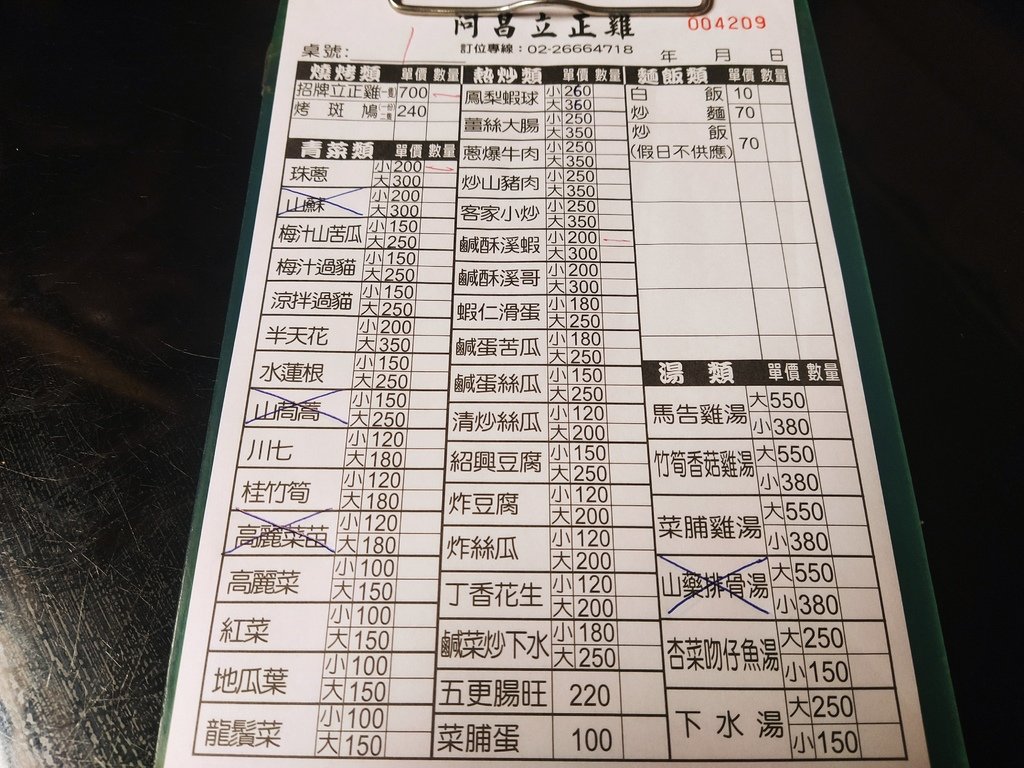 阿昌立正雞
004209
訂位專線：02-26664718
桌號：
年 月 日
燒烤類 單價 數量
招牌立正雞(一隻) 700
烤斑鳩 240
青菜類 單價 數量
珠蔥 小200 大300
山蘇 小200 大300
梅汁山苦瓜 小150 大250
梅汁過貓 小150 大250
涼拌過貓 小150 大250
半天花 小200 大350
水蓮根 小150 大250
山茼蒿 小150 大250
川七 小120 大180
桂竹筍 小120 大180
高麗菜苗 小120 大180
高麗菜 小100 大150
紅菜 小100 大150
地瓜葉 小100 大150
龍鬚菜 小100 大150
熱炒類 單價 數量
鳳梨蝦球 小260 大360
薑絲大腸 小250 大350
蔥爆牛肉 小250 大350
炒山豬肉 小250 大350
客家小炒 小250 大350
鹹酥溪蝦 小200 大300
鹹酥溪哥 小200 大300
蝦仁滑蛋 小180 大250
鹹蛋苦瓜 小180 大250
鹹蛋絲瓜 小150 大250
清炒絲瓜 小120 大200
紹興豆腐 小150 大250
炸豆腐 小120 大200
炸絲瓜 小120 大200
丁香花生 小120 大200
鹹菜炒下水 小180 大250
五更腸旺 220
菜脯蛋 100
麵飯類 單價 數量
白飯 10
炒麵 70
炒飯
(假日不供應) 70
湯類 單價 數量
馬告雞湯 大550 小380
竹筍香菇雞湯 大550 小380
菜脯雞湯 大550 小380
山藥排骨湯 大550 小380
杏菜吻仔魚湯 大250 小150
下水湯 大250 小150